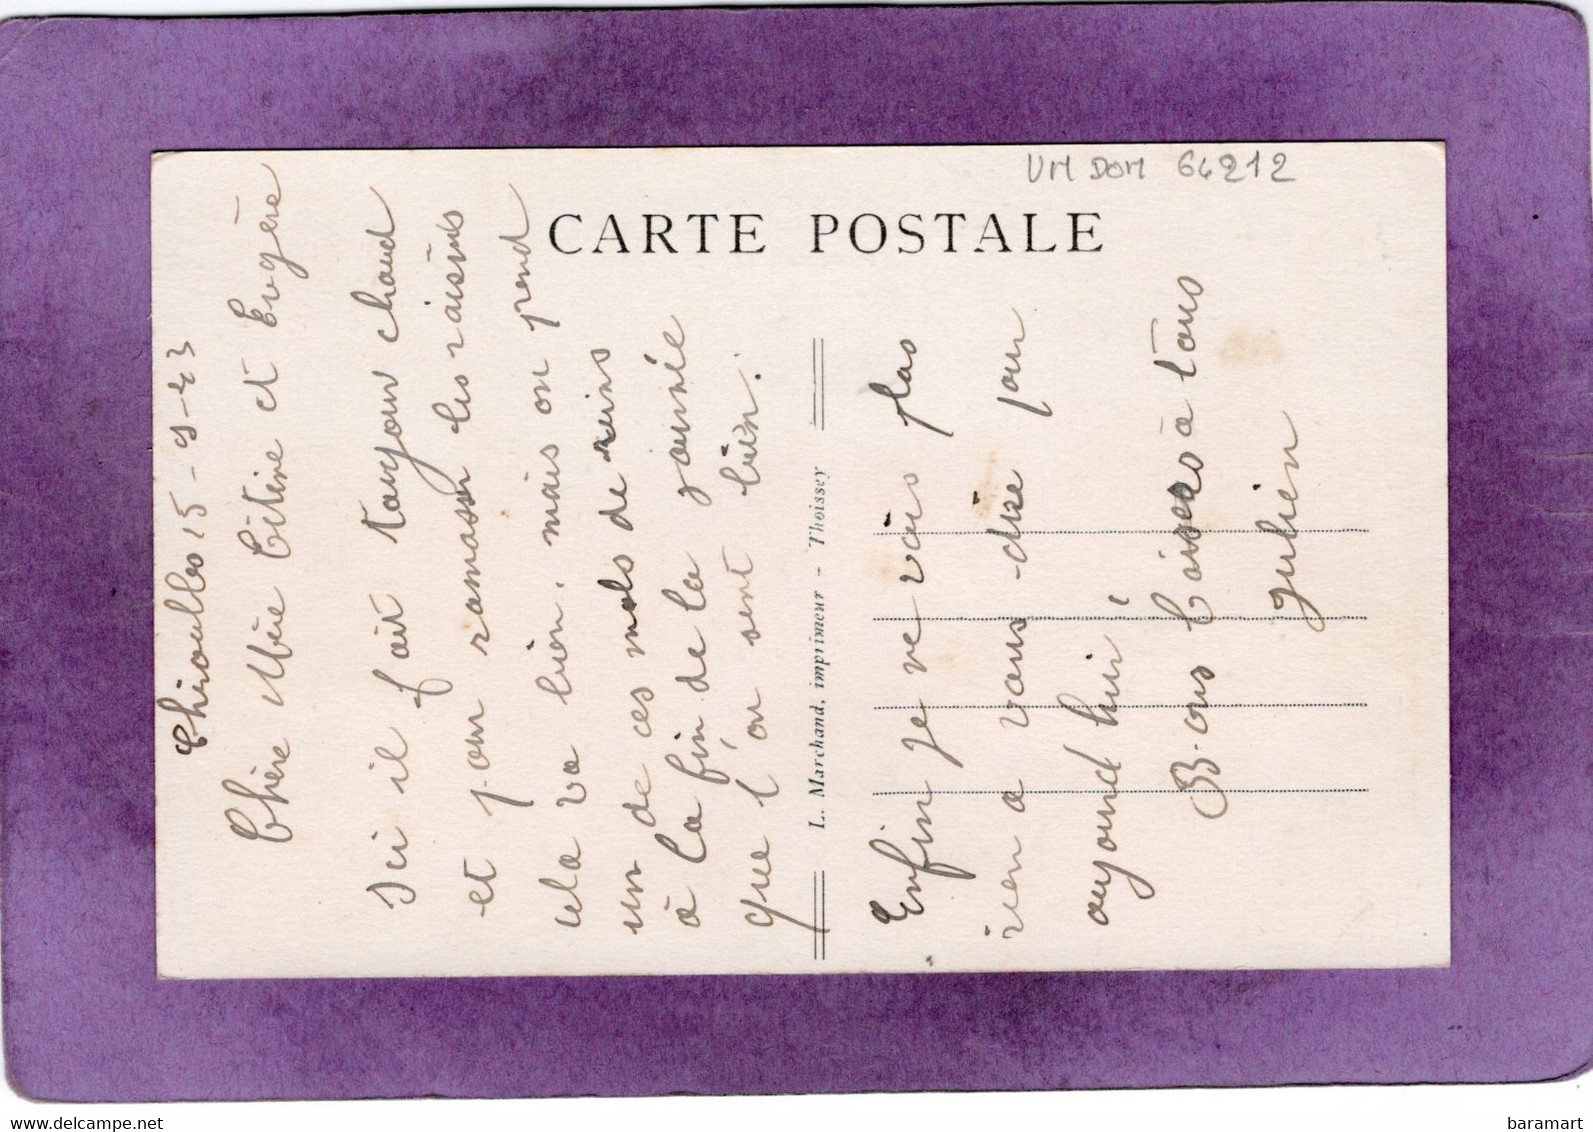 VM DOM 64212
CARTE POSTALE
Chiroubles 15-9-43
Chère Mère Titine et Eugène
Ici il fait toujour chaud
et pour ramasser les raisins
cela va bien. mais on prend
un de ces mals de reins
à la fin de la journée
que l'on sent bien.
L. Marchand, imprimeur - Thoissey
Enfin je ne vois plus
rien a vous dire pour
aujourd hui
Bons Baisers à tous
Julien
www.delcampe.net
baramart